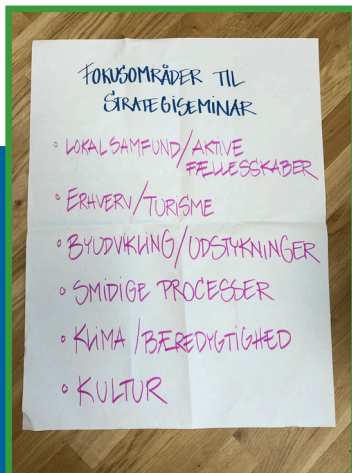 FOKUSOMRÅDER TIL
STRATEGISEMINAR
• LOKALSAMFUND/AKTIVE
FÆLLESSKABER
• ERHVERV/TURISME
• BYUDVIKLING/UDSTYKNINGER
• SMIDIGE PROCESSER
• KLIMA/BÆREDYGTIGHED
• KULTUR